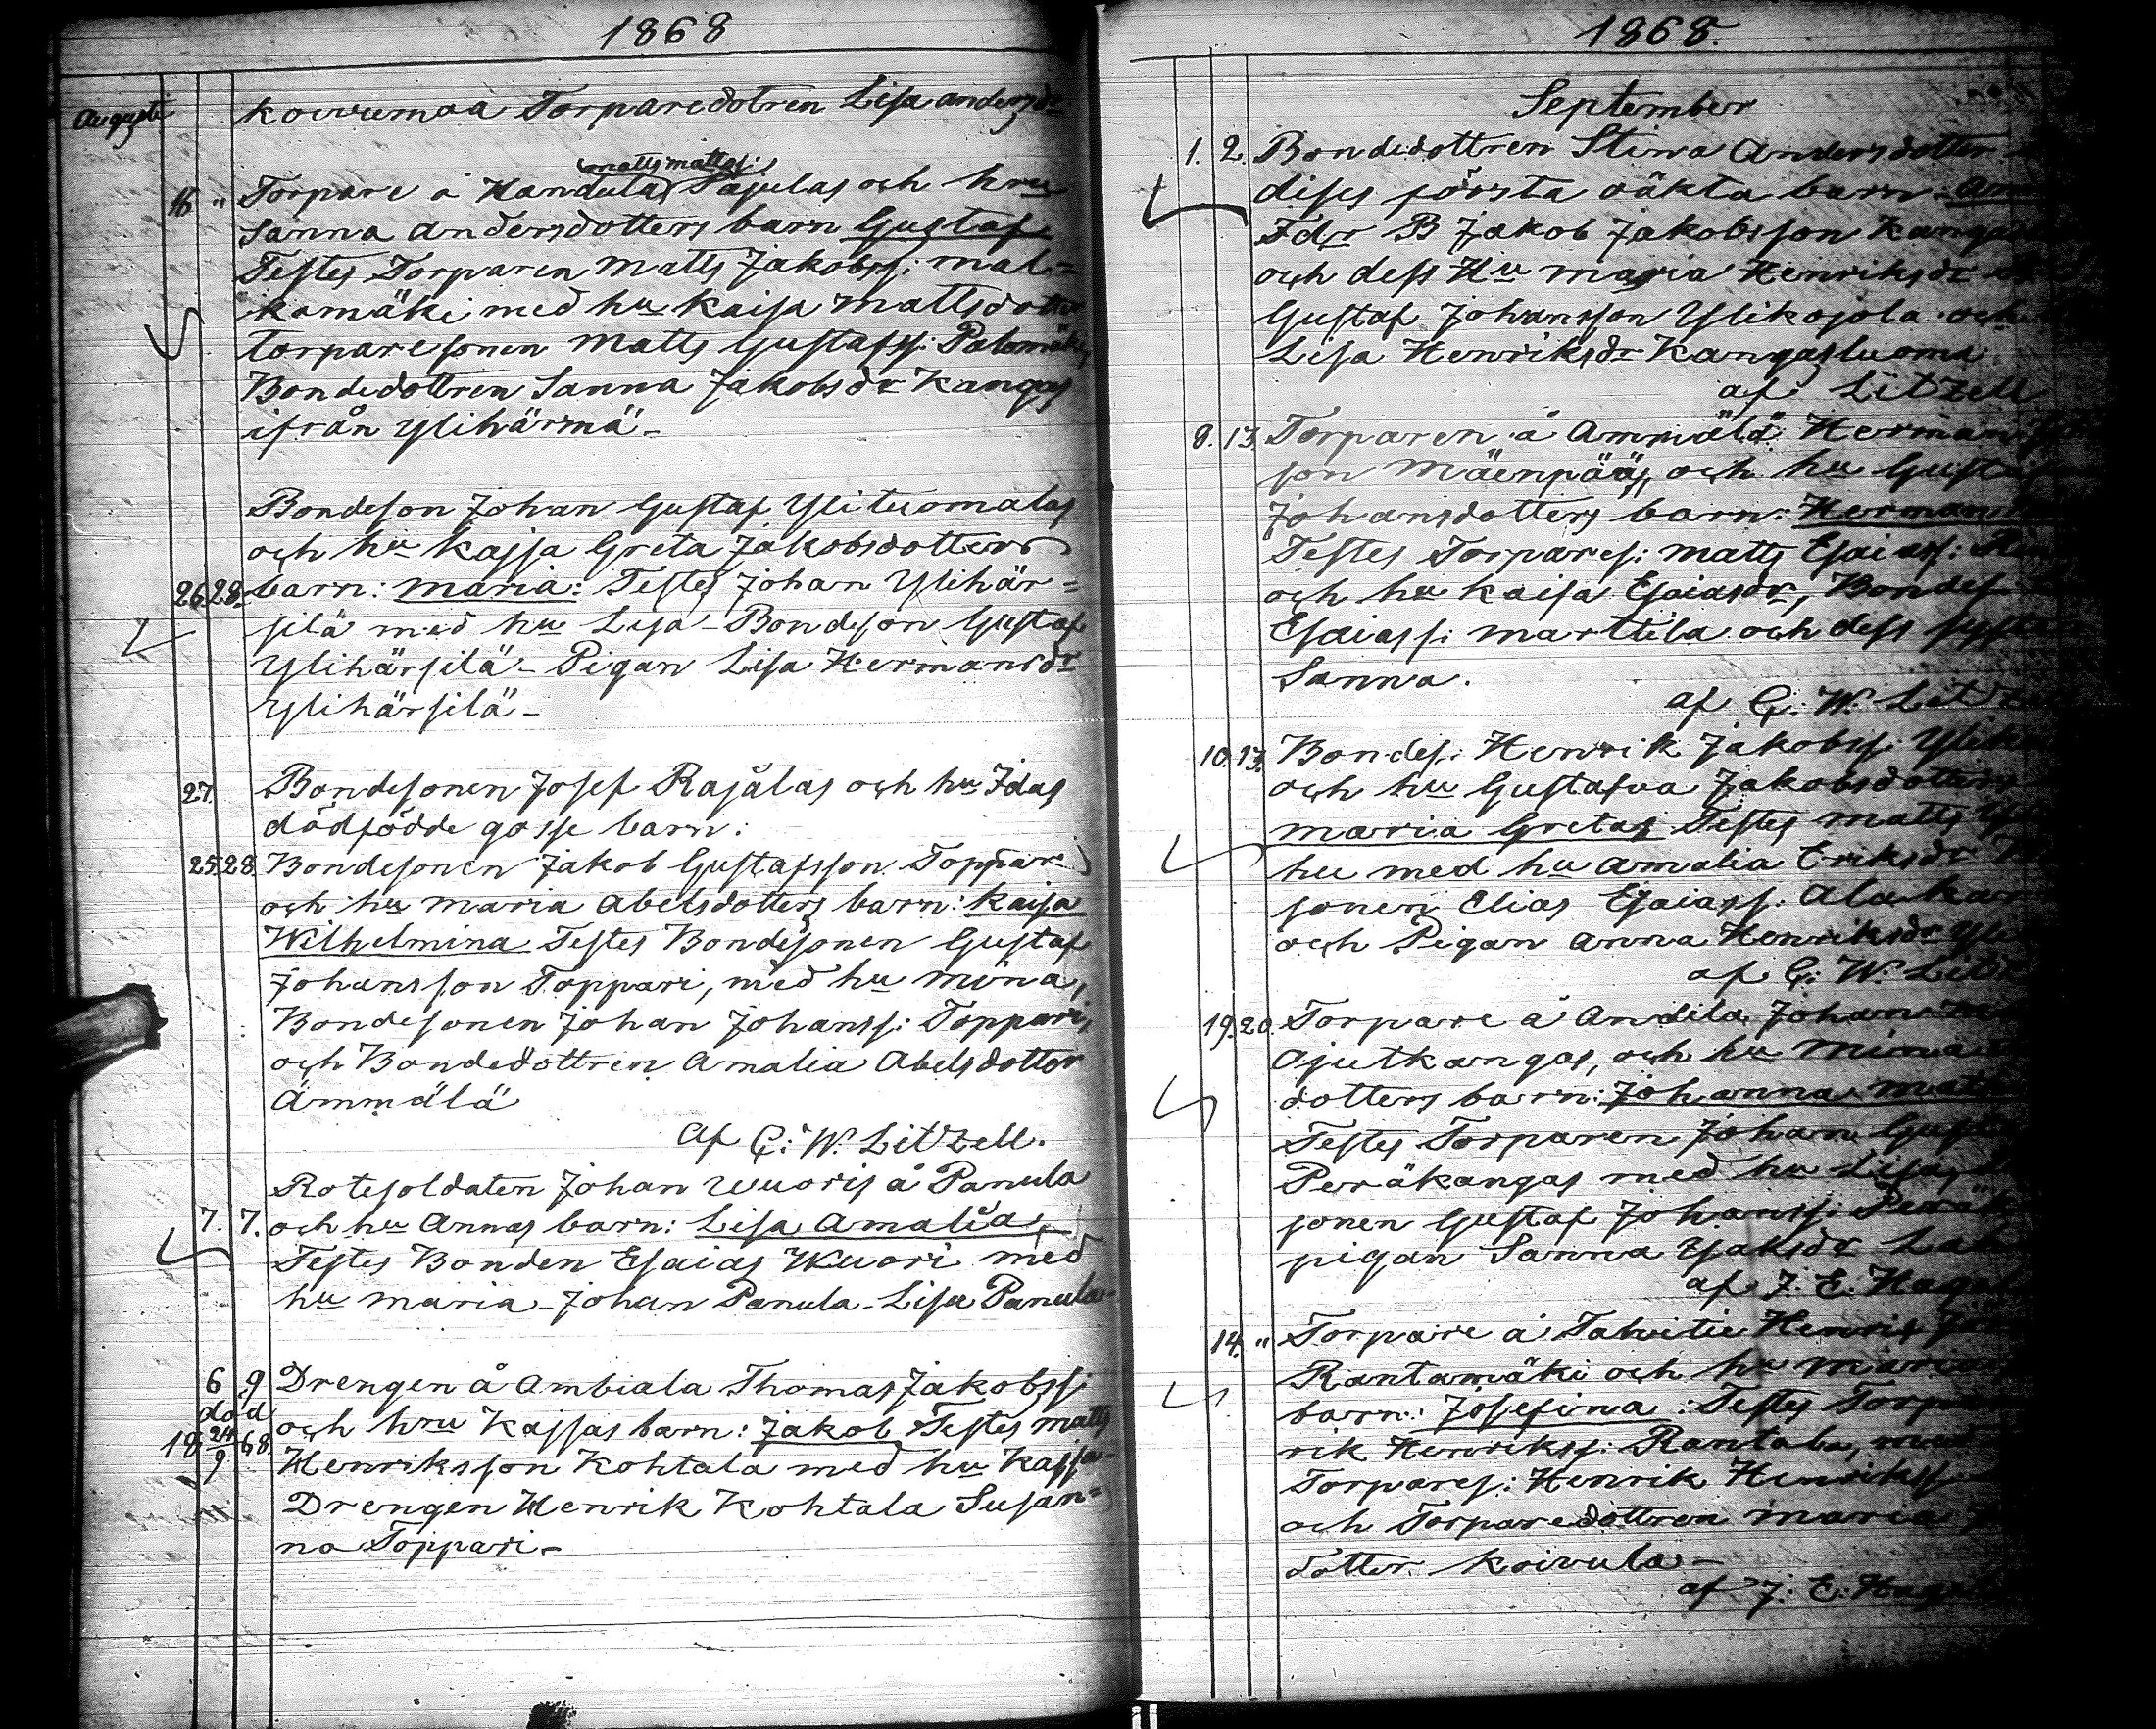 1868
Augusti
koivumaa Torparedotren Lisa andersdr
matts mattss:
16 " Torpare å Handula Sasulas och hru
Sanna andersdotters barn Gustaf
Testes Torparen Matts Jakobss: mal=
kamäki med hu kaisa mattsdotter
torparesonen Matts Gustafss: Palomäki
Bondedottren Sanna Jakobsdr Kangas
ifrån Ylihärmä-
Bondeson Johan Gustaf Ylituomalas
och hu kajsa Greta Jakobsdotters
26. 28. barn: maria: Testes Johan Ylihär=
silä med hu Lisa - Bondeson Gustaf
Ylihärsilä - Pigan Lisa Hermansdr
Ylihärsilä -
27. Bondesonen Josef Rajalas och hu Idas
dödfödde gosse barn:
25. 28. Bondesonen Jakob Gustafsson Toppari
och hu maria Abelsdotters barn: kaisa
Wilhelmina Testes Bondesonen Gustaf
Johansson Toppari, med hu mina,
Bondesonen Johan Johanss: Toppari,
och Bondedottren Amalia Abelsdotter
Ämmälä
af C: W. Litzell.
Rotesoldaten Johan Wuoris å Panula
7. 7. och hu Annas barn: Lisa Amalia,
Testes Bonden Esaias Wuori med
hu maria - Johan Panula - Lisa Panula-
6 9 Drengen å Ambiala Thomas Jakobss:
död och hru Kajsas barn: Jakob Testes matts
18 24/9 68. Henriksson Kohtala med hu Kajsa-
Drengen Henrik Kohtala Susan=
na Toppari-
1868.
September
1. 2. Bondedottren Stina Andersdotter
dises första oäkta barn
Fdr B Jakob Jakobsson Kangas
och dess Hu maria Henriksdr
Gustaf Johansson Ylikojola och
Lisa Henriksdr Kangasluoma
af Litzell
9. 13. Torparen å Ammälä Herman
son Mäenpääs, och hu
Johansdotters barn: Herman
Testes Torpares: matts Esaiass:
och hu kaisa Esaiasdr, Bondes
Esaiass: marttila och dess
Sanna.
af C: W. Litz
10. 13. Bondes: Henrik Jakobss:
och hu Gustafva Jakobsdotters
maria Greta: Testes matts
hu med hu amalia Eriksdr
sonen Elias Esaiass:
och Pigan Anna Henriksdr
af C: W. Litz
19. 20. Torpare å Andila Johan
Ojutkangas, och hu Mina
dotters barn: Johanna
Testes Torparen Johan
Peräkangas med hu Lisa,
sonen Gustaf Johanss:
pigan Sanna Isaksdr
af J. E. Hag
14. " Torpare å Talvitie Henrik
Rantamäki och hu maria
barn: Josefina: Testes
rik Henrikss: Rantala, med
Torpares: Henrik Henriksson
och Torparedottren maria
dotter koivula -
af J. E. Hag